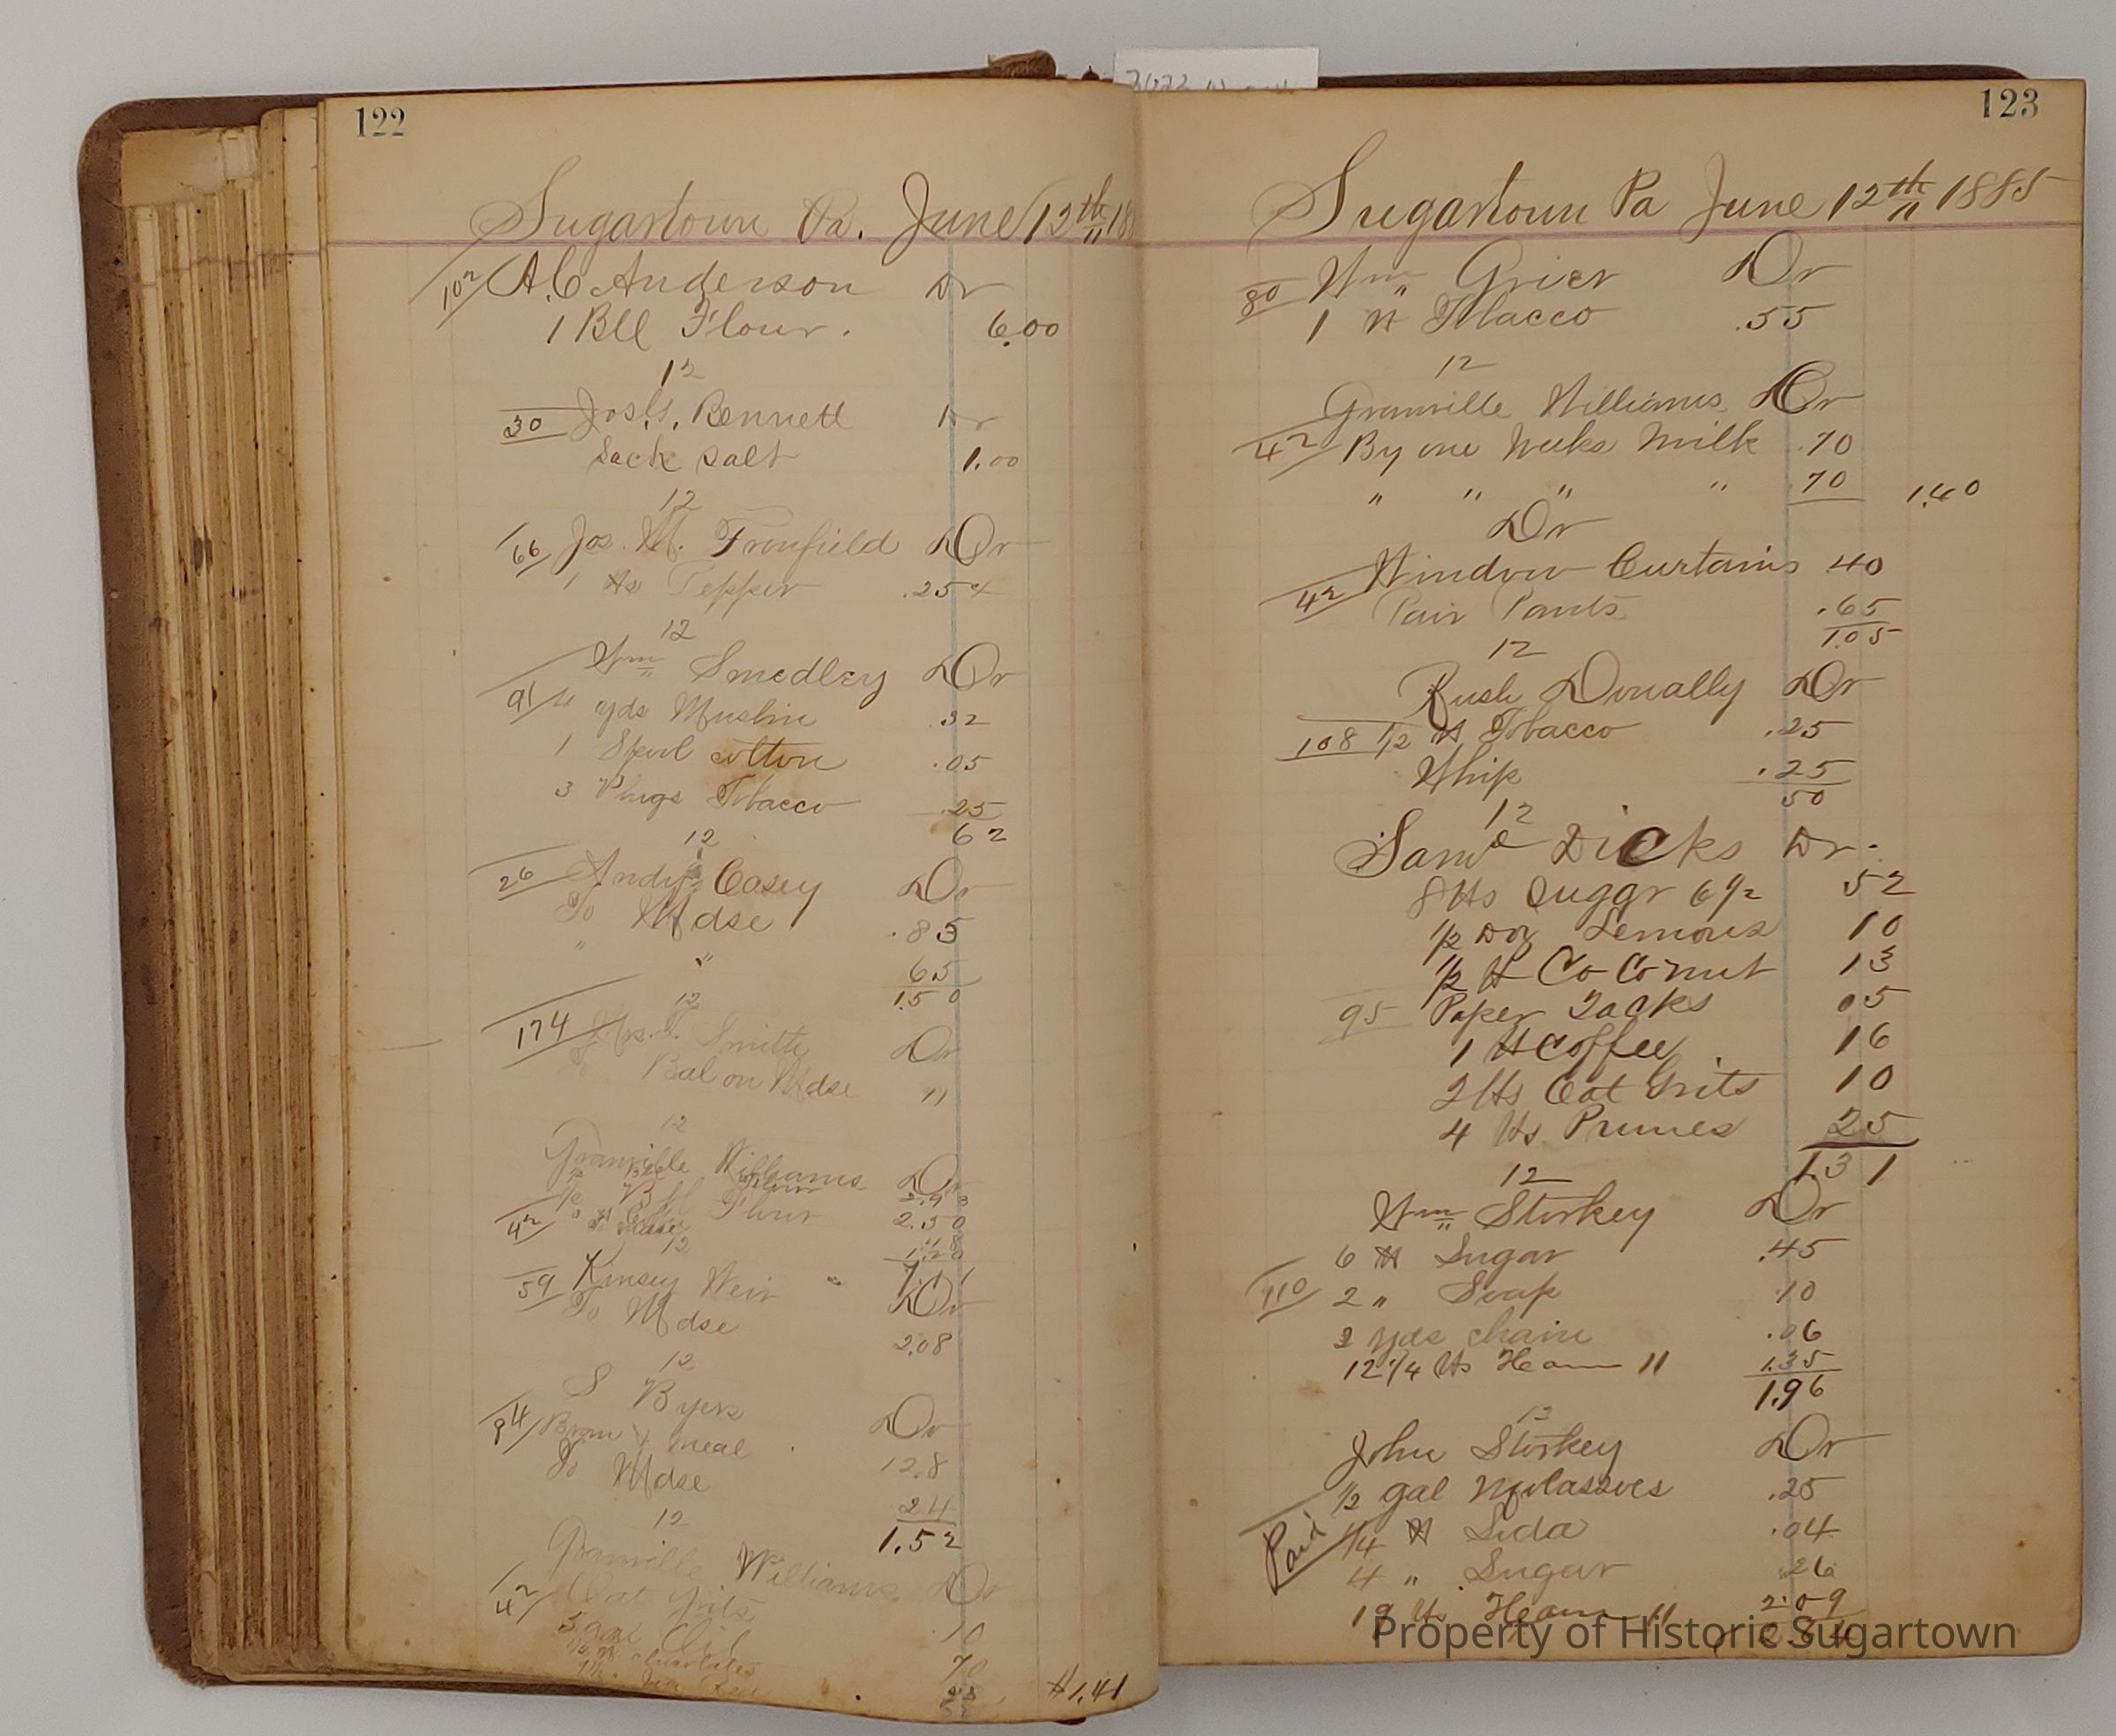 122
Sugartown Pa. June 12th 18
102 A.C. Anderson Dr
1 Bll Flour. 6.00
12
30 Jos. G. Bennett Dr
Sack Salt 1.00
12
66 Jos. M. Fronfield Dr
1 lb Pepper .25
12
Wm Smedley Dr
91 4 yds Muslin .32
1 Spool cotton .05
3 Plugs Tobacco .25
62
12
26 Andy Casey Dr
To Mdse .85
" " 65
1.50
12
174 Smith Dr
To Bal on Mdse "
12
Granville Williams Dr
Bbl Flour 2.50
42
12
59 Kinsey Weir Dr
To Mdse 2.08
12
S Byers Dr
94 Bran & meal 12.8
To Mdse 24
1.52
12
Granville Williams Dr
42 Oat Grits 10
5 gal Oil
$1.41
123
Sugartown Pa June 12th 1885
80 Wm Grier Dr
1 lb Tobacco .55
12
Granville Williams Cr
42 By one Weeks Milk .70
" " " " 70 1.40
Dr
Window Curtains .40
42 Pair Pants .65
1.05
12
Rush Donally Dr
108 1/2 lb Tobacco .25
Whip .25
50
12
Saml Dicks Dr.
8 lbs Sugar 6 1/2 52
1/2 Doz Lemons 10
1/2 lb Co Conut 13
95 Paper Tacks 05
1 lb Coffee 16
2 lbs Oat Grits 10
4 lbs Prunes 25
1.31
12
Wm Storkey Dr
6 lb Sugar .45
110 2 " Soap .10
2 yds chain .06
12 1/4 lbs Ham 11 1.35
1.96
12
John Storkey Dr
1/2 gal Molasses .25
Paid 1/4 lb Soda .04
4 " Sugar 26
19 lbs Ham 11 2.09
2.64
Property of Historic Sugartown